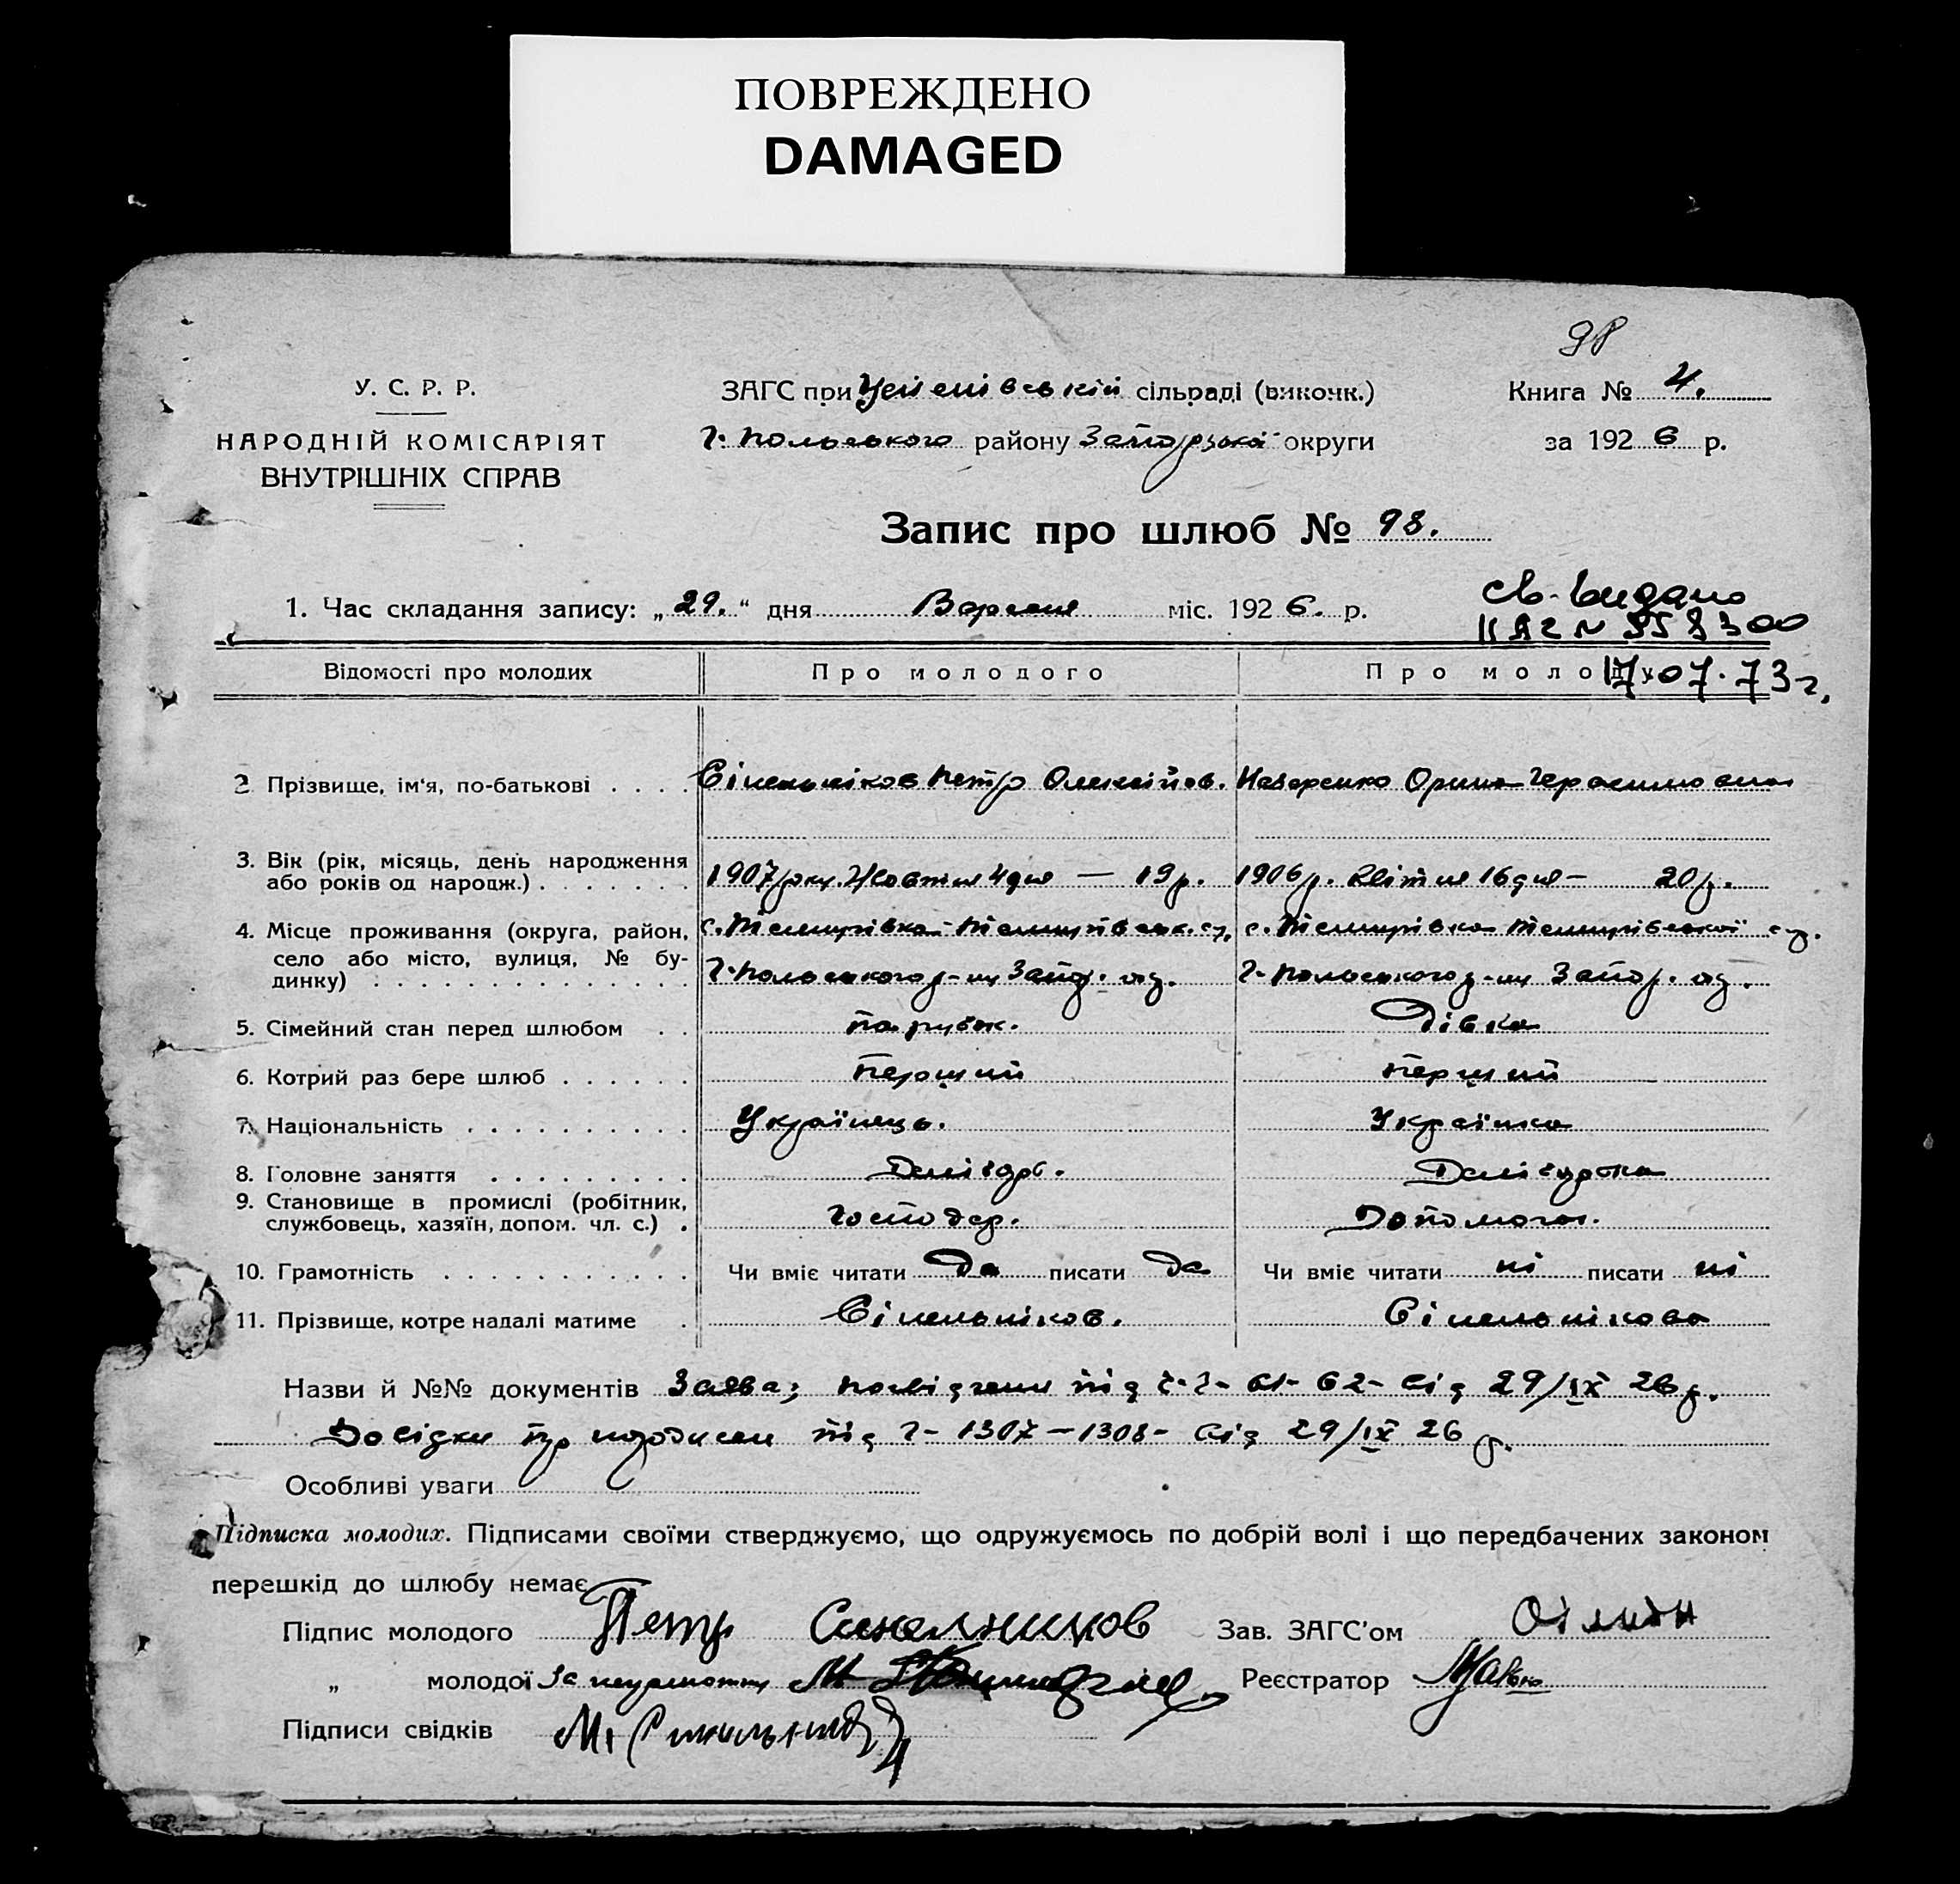 ПОВРЕЖДЕНО
DAMAGED
98
У. С. Р. Р.
НАРОДНІЙ КОМІСАРІЯТ
ВНУТРІШНІХ СПРАВ
ЗАГС при сільраді (викочк.)
району округи
Книга № 4.
за 1926 р.
Запис про шлюб № 98.
1. Час складання запису: „29.“ дня Вересня міс. 1926. р.
св. видано
17.07.73 г.
Відомості про молодих Про молодого Про молоду
2 Прізвище, ім'я, по-батькові . . . . Сінельніков Петро Олексійов. Назаренко Орина Герасимовна
3. Вік (рік, місяць, день народження
або років од народж.) . . . . . . . 1907 року Жовтня 4 дня — 19 р. 1906 р. Квітня 16 дня — 20 р.
4. Місце проживання (округа, район,
село або місто, вулиця, № бу-
динку) . . . . . . . . . . . . . .
5. Сімейний стан перед шлюбом . . парубок. Дівка
6. Котрий раз бере шлюб . . . . . . Перший Перший
7. Національність . . . . . . . . . . Українець. Українка
8. Головне заняття . . . . . . . . .
9. Становище в промислі (робітник,
службовець, хазяїн, допом. чл. с.) . Господар. Допомогає.
10. Грамотність . . . . . . . . . . . Чи вміє читати Да писати Да Чи вміє читати ні писати ні
11. Прізвище, котре надалі матиме . Сінельніков. Сінельнікова
Назви й №№ документів Заява; посвідчення під ч. ч- 61- 62- від 29/IX 26 р.
Довідки про під ч- 1307 — 1308- від 29/IX 26 р.
Особливі уваги
Підписка молодих. Підписами своїми стверджуємо, що одружуємось по добрій волі і що передбачених законом
перешкід до шлюбу немає
Підпис молодого Петр Синелников Зав. ЗАГС'ом
„ молодої За неграмотну Реєстратор
Підписи свідків